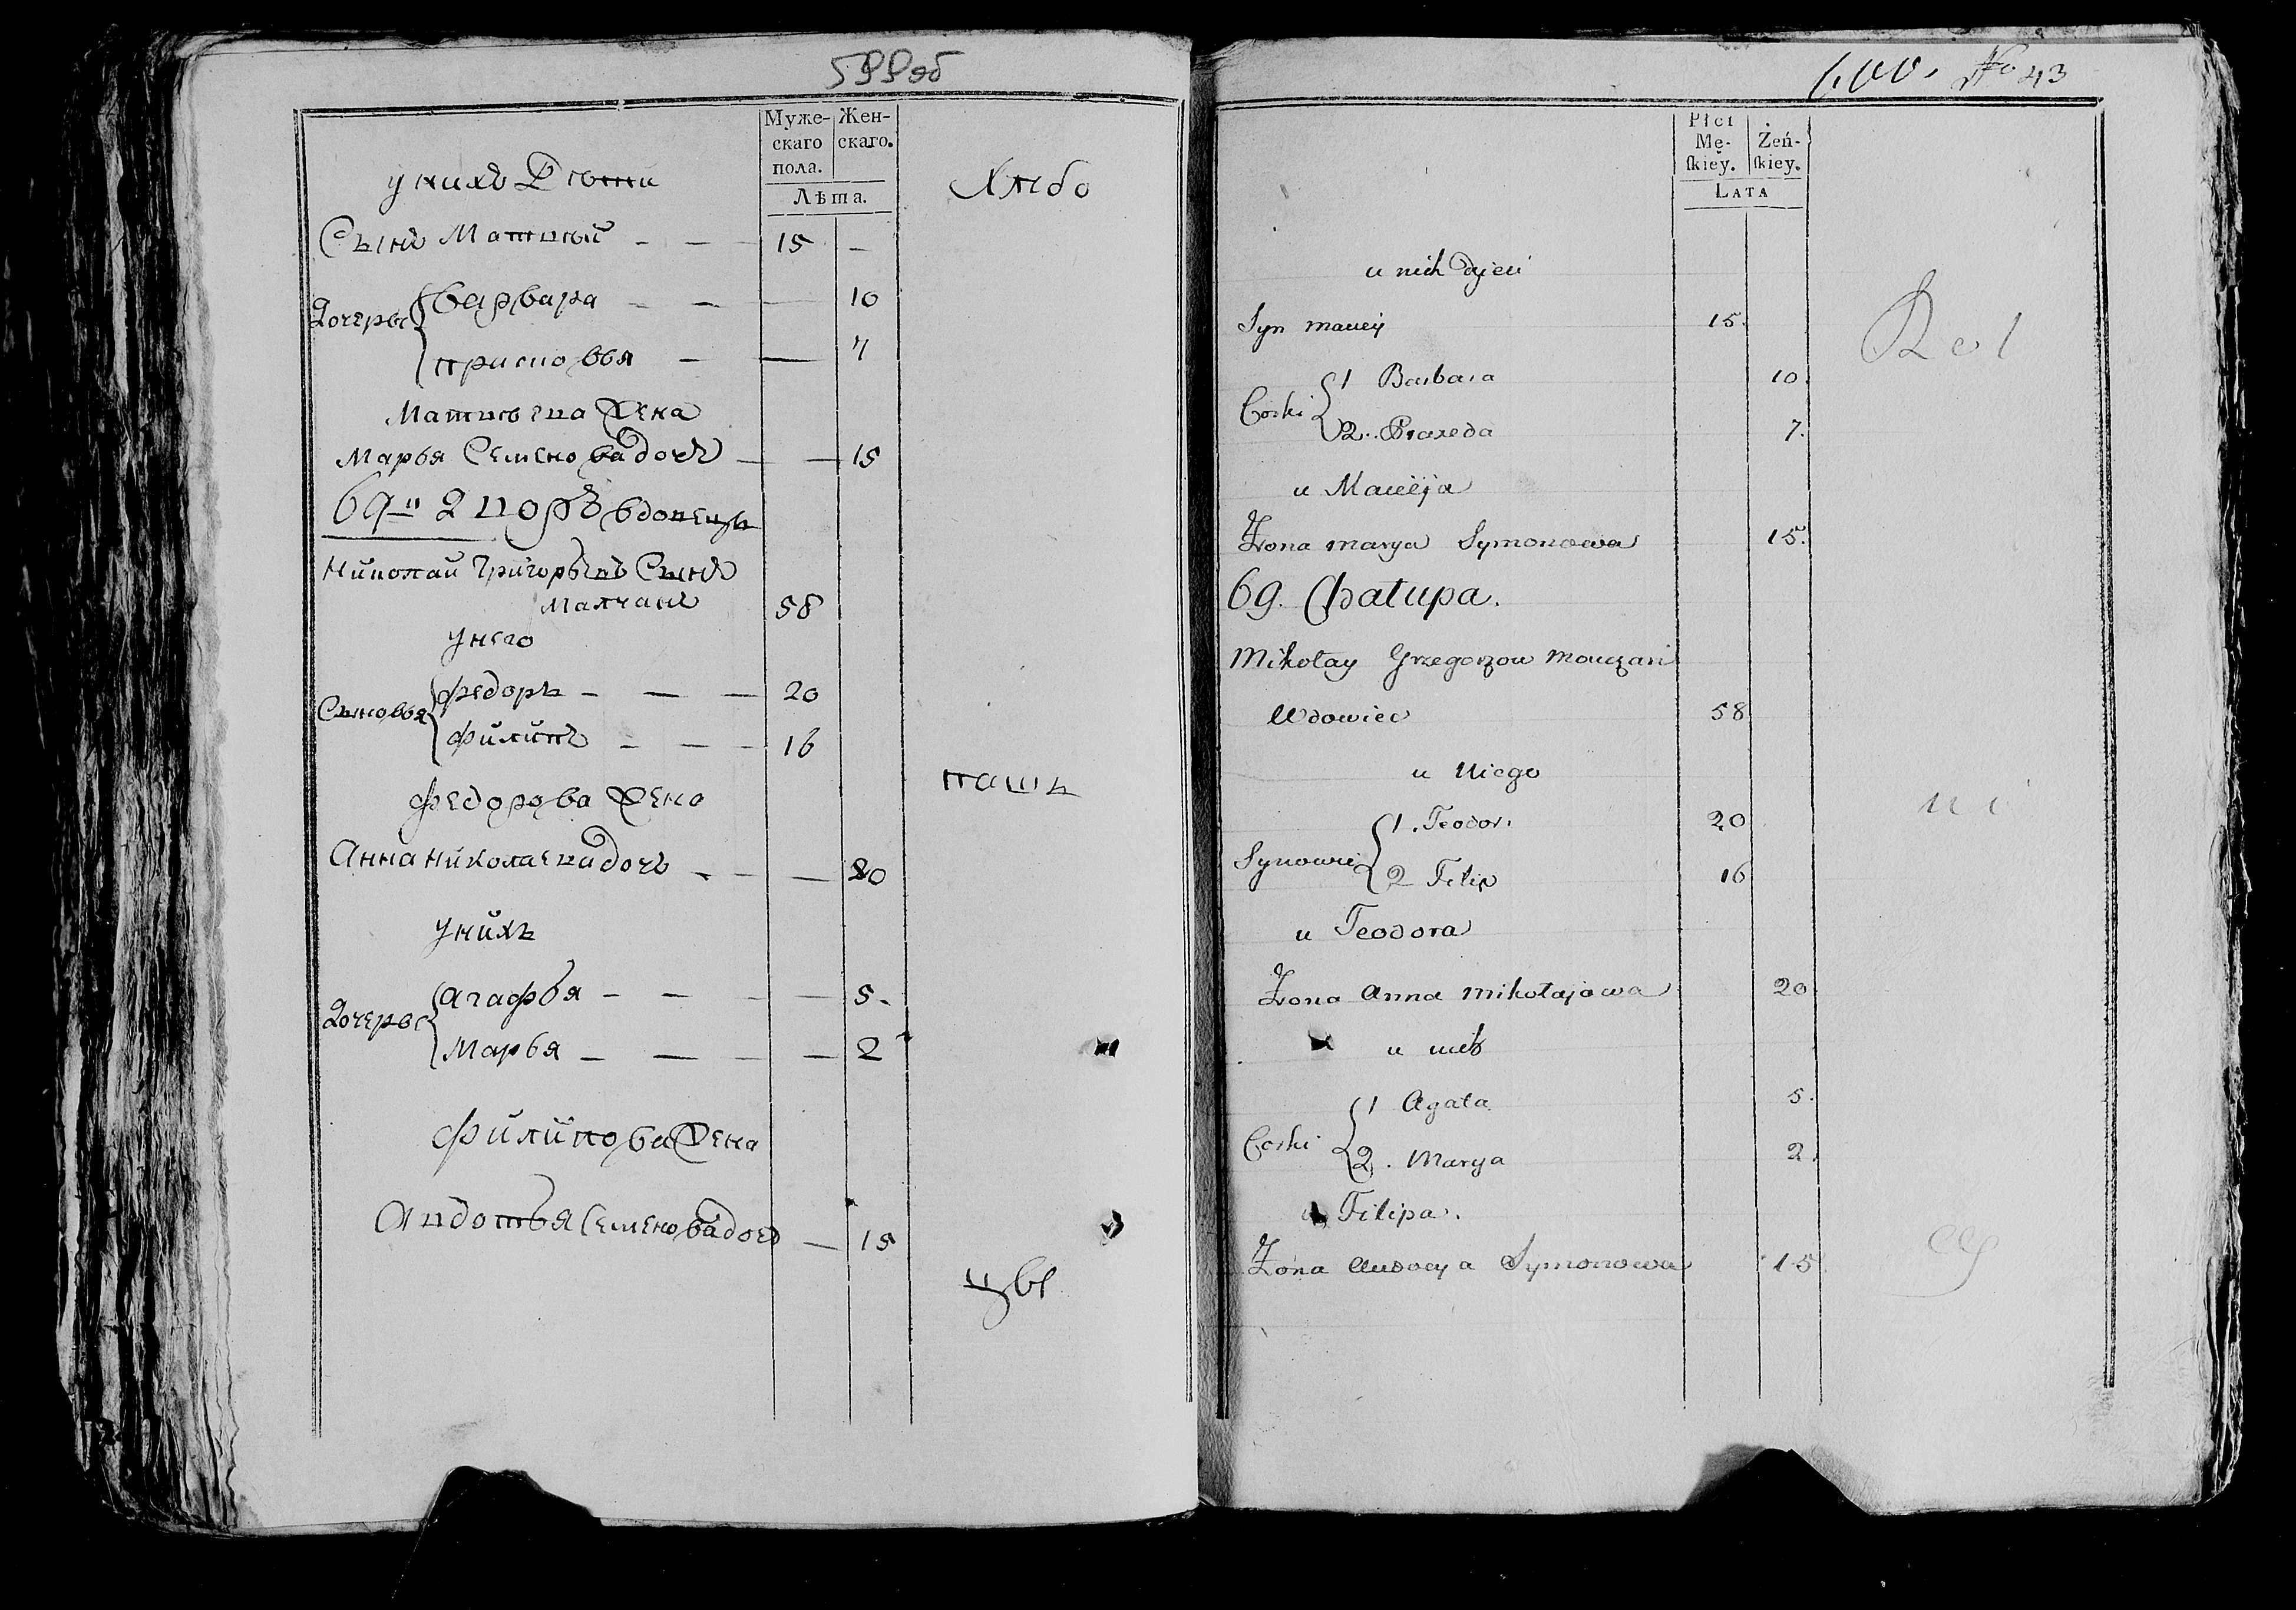 599об
Муже-
скаго
пола.
Жен-
скаго.
Лѣта.
у нихъ Дѣти
Хлѣбо
Сынъ Матвѣй — — 15 —
Дочерьи
Варвара — — — 10
присковья — — 7
Матвѣева Жена
Марья Семенова дочь — — 15
69й Дворъ вдовецъ
Николай Григорьевъ Сынъ
Малчанъ 58
у него
Сыновья
федоръ — — — 20
филипъ — — — 16
федорова Жена
пашь
Анна Николаева дочь — — — 20
у нихъ
Дочерьи
Агафья — — — — 5.
Марья — — — — 2
филипова Жена
Авдотья Семенова дочь — 15
цы
600. No 43
Płci
Mę-
ſkiey.
Żeń-
ſkiey.
LATA
u nich dzieci
Syn Maciey 15.
Rol
Corki
1 Barbara 10.
2. Praxeda 7.
u Macieja
Żona marya Symonowa 15.
69. Chałupa.
Mikołay Grzegorzow Mouczan
Wdowiec 58
u Niego
ni
Synowie
1. Teodor. 20
2 Filip 16
u Teodora
Żona Anna Mikołajowa 20
u nich
Corki
1 Agata 5.
2. Marya 2.
u Filipa.
cy
Żona Audocya Symonowa 15